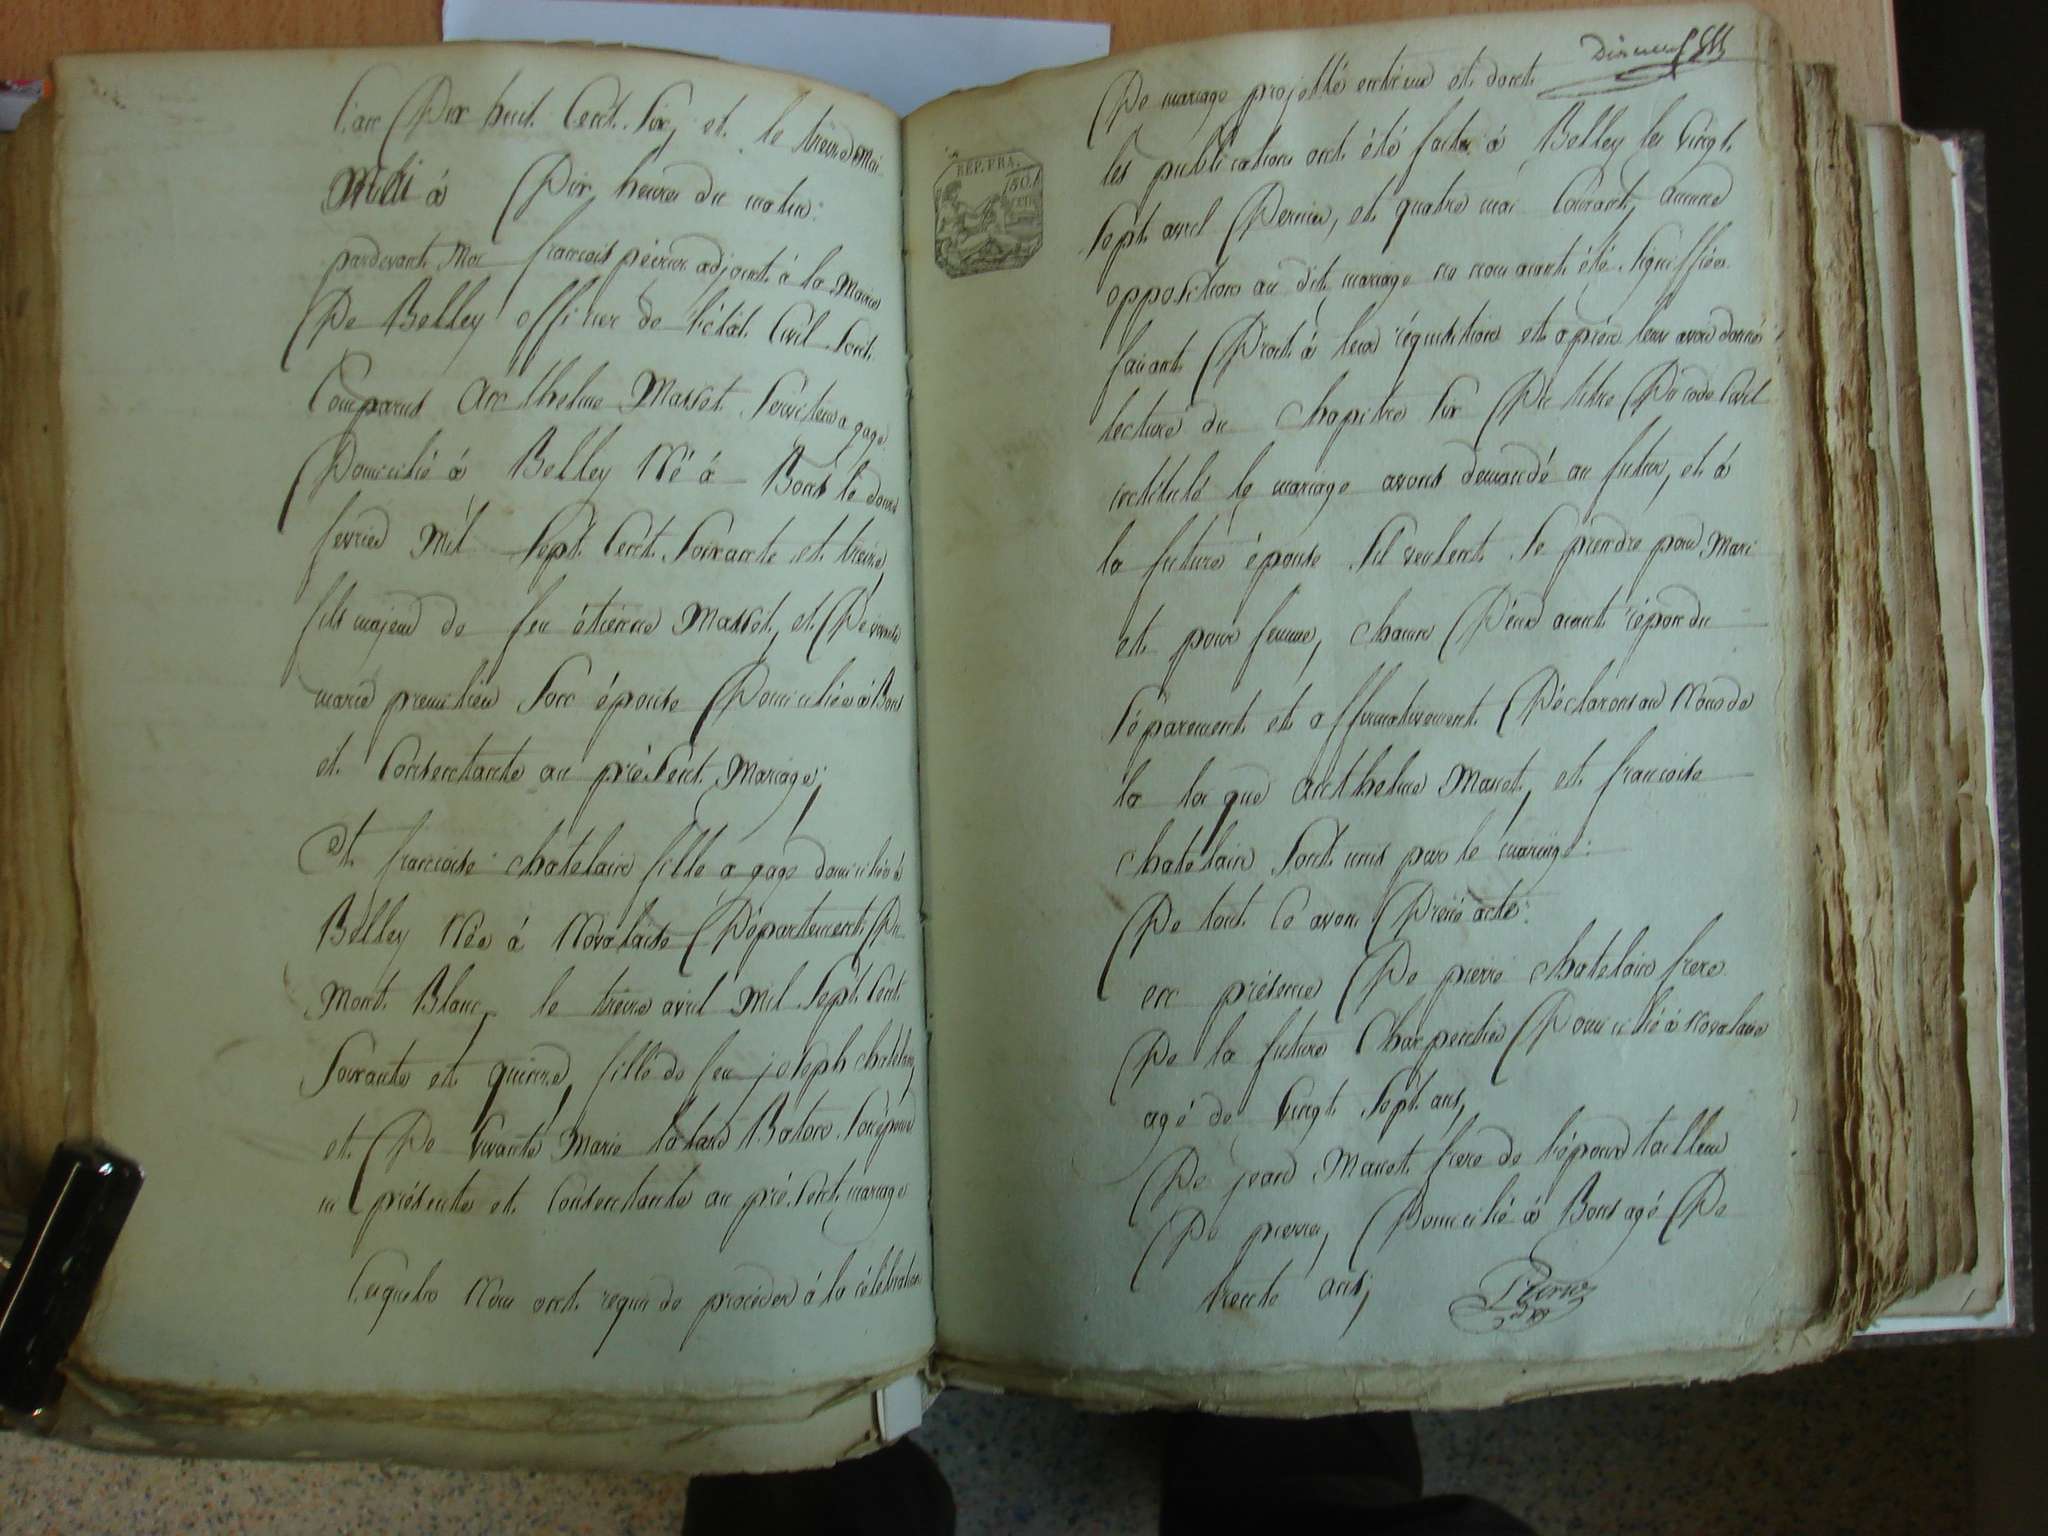 L'an Dix huit Cent Six, et le treize Mai
Mai à Dix heures du matin:
pardevant Moi francois périer adjoint à la Mairie
De Belley officier de l'état Civil Sont
Comparus Anthelme Masset Serviteur a gage
Domicilié à Belley Né à Bons le douze
fevrier Mil Sept Cent Soixante et treize
fils majeur de feu étienne Masset, et De vivante
marie premilieu Son épouse Domiciliée à Bons
et Consentante au présent Mariage;
Et francoise chatelain fille a gage domiciliée à
Belley Née à Novalaise Département Du
Mont Blanc, le treize avril Mil Sept Cent
Soixante et quinze, fille de feu joseph chatelain,
et De Vivante Marie Son épouse
ici présente et Consentante au présent mariage
Lesquels Nous ont requis de procéder à la célébration
De mariage projetté entr'eux et dont
les publications ont été faites à Belley les vingt
Sept avril Dernier, et quatre mai Courant, aucune
opposition au dit mariage ne nous aiant été Signiffiée
faisant Droit à leur réquisition et après leur avoir donné
lecture du chapitre Six Du titre Du code Civil
intitulé le mariage avons demandé au futur, et à
la future épouse S'il veulent Se prendre pour Mari
et pour femme, chacun D'eux aiant répondu
Séparement et affirmativement Déclarons au Nom de
la loi que Anthelme Masset, et francoise
chatelain Sont unis par le mariage:
De tout Ce avons Dressé acte:
en présence De pierre chatelain frere
De la future Charpentier Domicilié à Novalaise
agé de vingt Sept ans,
De jean Masset frere de l'époux tailleur
De pierre, Domicilié à Bons agé De
trente ans;
REP. FRA.